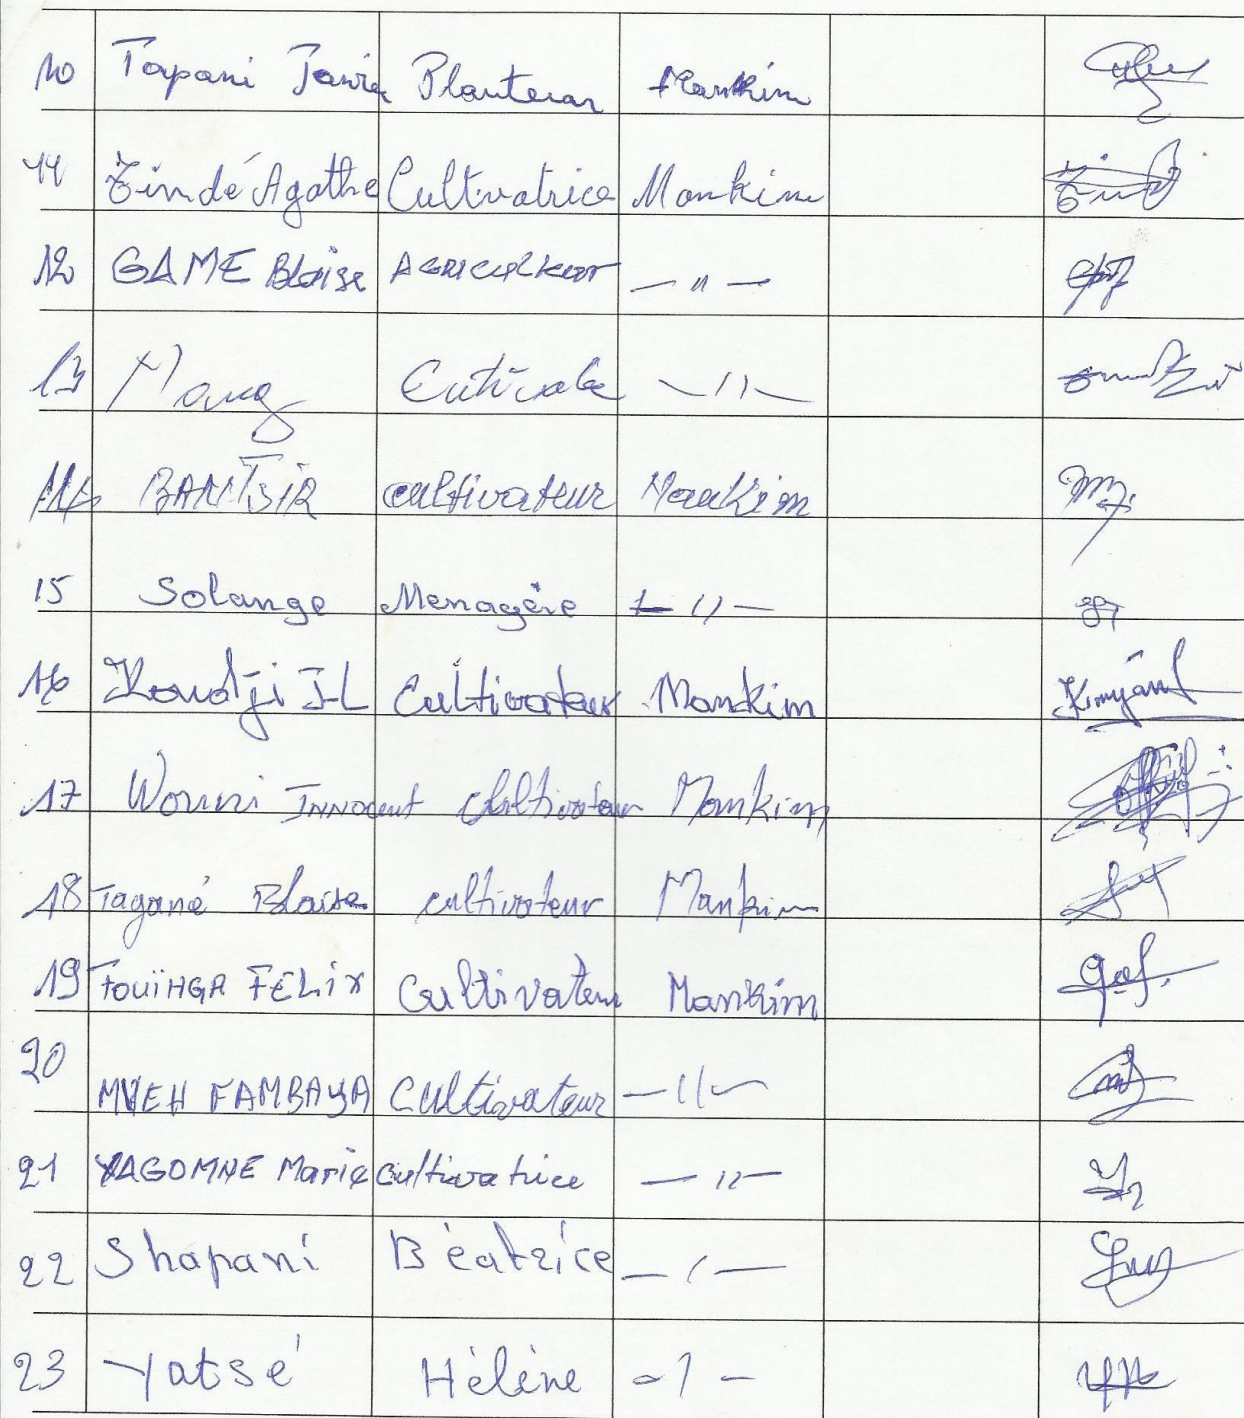 10 Tapani Planteur Mankim
11 Zindé Agathe Cultivatrice Mankim
12 GAME Blaise AGRICULteur — " —
13 Mang — " —
14 BANTSIR cultivateur Mankim
15 Solange Menagère — " —
16 Koudji J-L Cultivateur Mankim
17 Wouni INNocent Cultivateur Mankim
18 Tagané Blaise cultivateur Mankim
19 FOUÏNGA FELix Cultivateur Mankim
20 MVEH FAMBAYA Cultivateur — " —
21 YAGOMNE Marie cultivatrice — " —
22 Shapani Béatrice — " —
23 Yatsé Hélène — " —